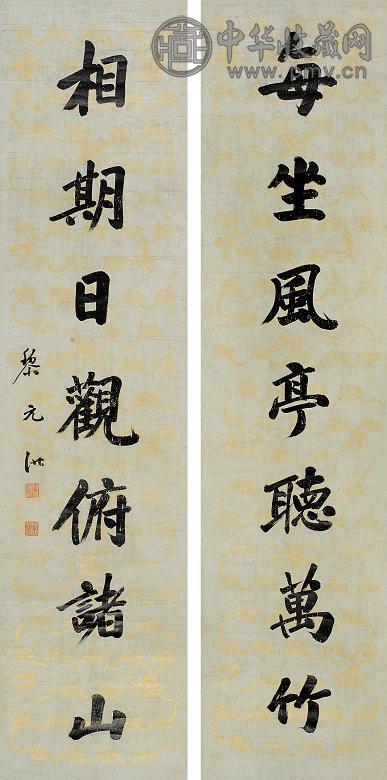 中华收藏网
www.pmv.cn
每坐風亭聽萬竹
相期日觀俯諸山
黎元洪